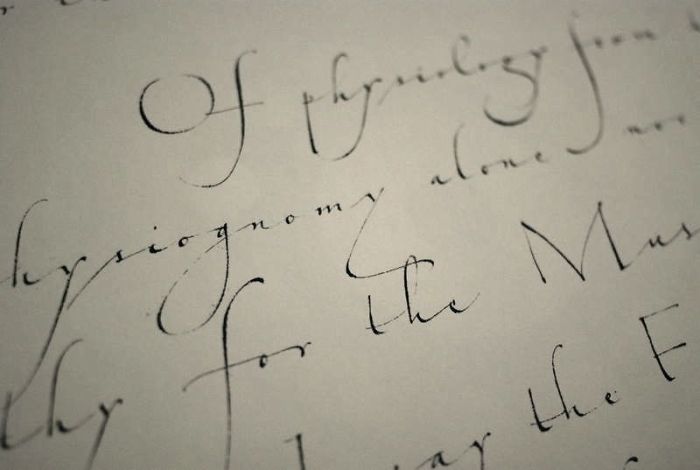 Of physiology from
hysiognomy alone nor
thy for the Mus
I say the F